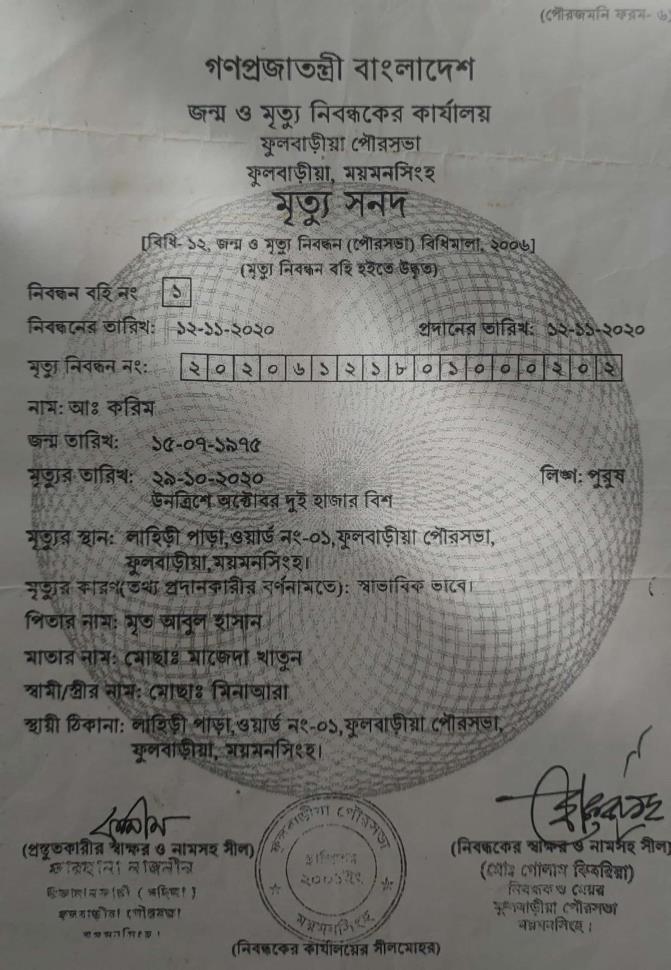 (পৌরজমনি ফরম- ৬)
গণপ্রজাতন্ত্রী বাংলাদেশ
জন্ম ও মৃত্যু নিবন্ধকের কার্যালয়
ফুলবাড়ীয়া পৌরসভা
ফুলবাড়ীয়া, ময়মনসিংহ
মৃত্যু সনদ
[বিধি- ১২, জন্ম ও মৃত্যু নিবন্ধন (পৌরসভা) বিধিমালা, ২০০৬]
(মৃত্যু নিবন্ধন বহি হইতে উদ্ধৃত)
নিবন্ধন বহি নং ১
নিবন্ধনের তারিখ: ১২-১১-২০২০ প্রদানের তারিখ: ১২-১১-২০২০
মৃত্যু নিবন্ধন নং: ২ ০ ২ ০ ৬ ১ ২ ১ ৮ ০ ১ ০ ০ ০ ২ ০ ২
নাম: আঃ করিম
জন্ম তারিখ: ১৫-০৭-১৯৭৫
মৃত্যুর তারিখ: ২৯-১০-২০২০ লিঙ্গ: পুরুষ
উনত্রিশে অক্টোবর দুই হাজার বিশ
মৃত্যুর স্থান: লাহিড়ী পাড়া,ওয়ার্ড নং-০১,ফুলবাড়ীয়া পৌরসভা,
ফুলবাড়ীয়া,ময়মনসিংহ।
মৃত্যুর কারণ(তথ্য প্রদানকারীর বর্ণনামতে): স্বাভাবিক ভাবে।
পিতার নাম: মৃত আবুল হাসান
মাতার নাম: মোছাঃ মাজেদা খাতুন
স্বামী/স্ত্রীর নাম: মোছাঃ মিনাআরা
স্থায়ী ঠিকানা: লাহিড়ী পাড়া,ওয়ার্ড নং-০১,ফুলবাড়ীয়া পৌরসভা,
ফুলবাড়ীয়া, ময়মনসিংহ।
(প্রস্তুতকারীর স্বাক্ষর ও নামসহ সীল) (নিবন্ধকের স্বাক্ষর ও নামসহ সীল)
ফারহানা নাজনীন
ফুলবাড়ীয়া পৌরসভা
ময়মনসিংহ।
ফুলবাড়ীয়া পৌরসভা
স্থাপিত
২০০১ইং
ময়মনসিংহ
(মোঃ গোলাম কিবরিয়া)
নিবন্ধক ও মেয়র
ফুলবাড়ীয়া পৌরসভা
ময়মনসিংহ।
(নিবন্ধকের কার্যালয়ের সীলমোহর)